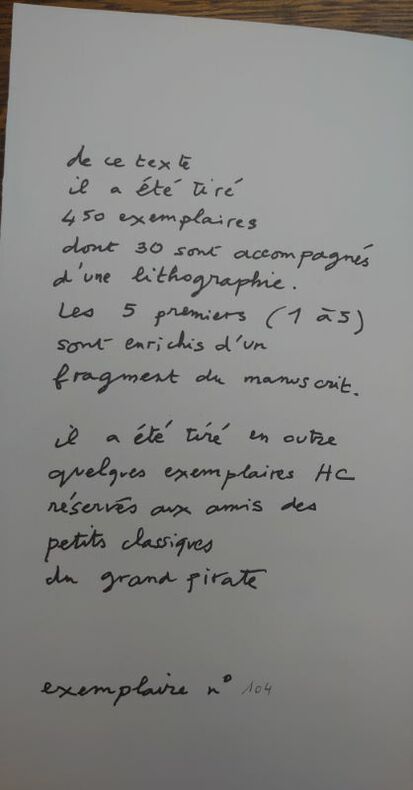 de ce texte
il a été tiré
450 exemplaires
dont 30 sont accompagnés
d'une lithographie.
Les 5 premiers (1 à 5)
sont enrichis d'un
fragment du manuscrit.
il a été tiré en outre
quelques exemplaires HC
réservés aux amis des
petits classiques
du grand pirate
exemplaire n° 104